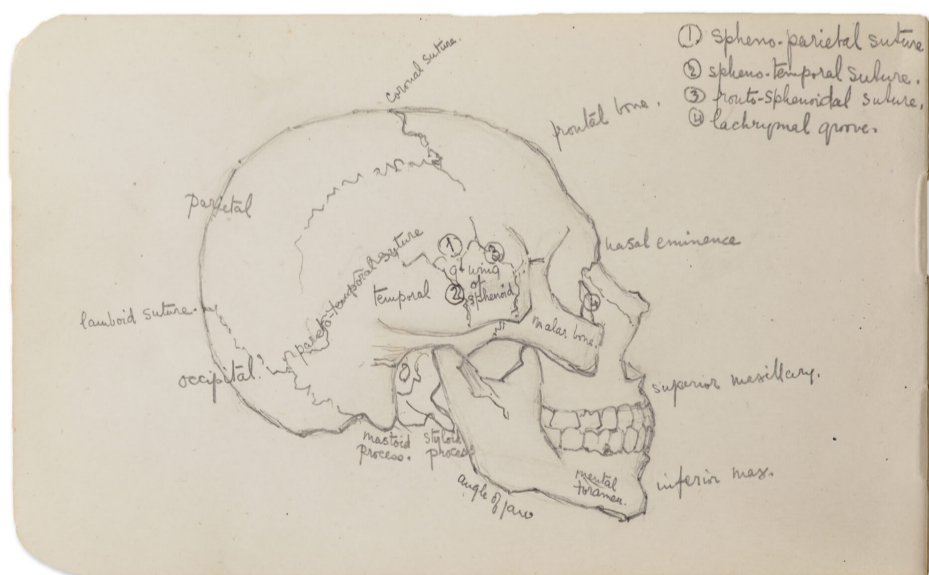 ① spheno-parietal suture
② spheno-temporal suture.
③ fronto-sphenoidal suture.
④ lachrymal groove.
Coronal suture.
frontal bone.
Parietal
nasal eminence
parieto-temporal suture
①
③
g. wing
of
sphenoid
temporal
②
④
lamboid suture.
malar bone.
occipital.
superior maxillary.
mastoid
process.
styloid
process
angle of jaw
mental
foramen.
inferior max.